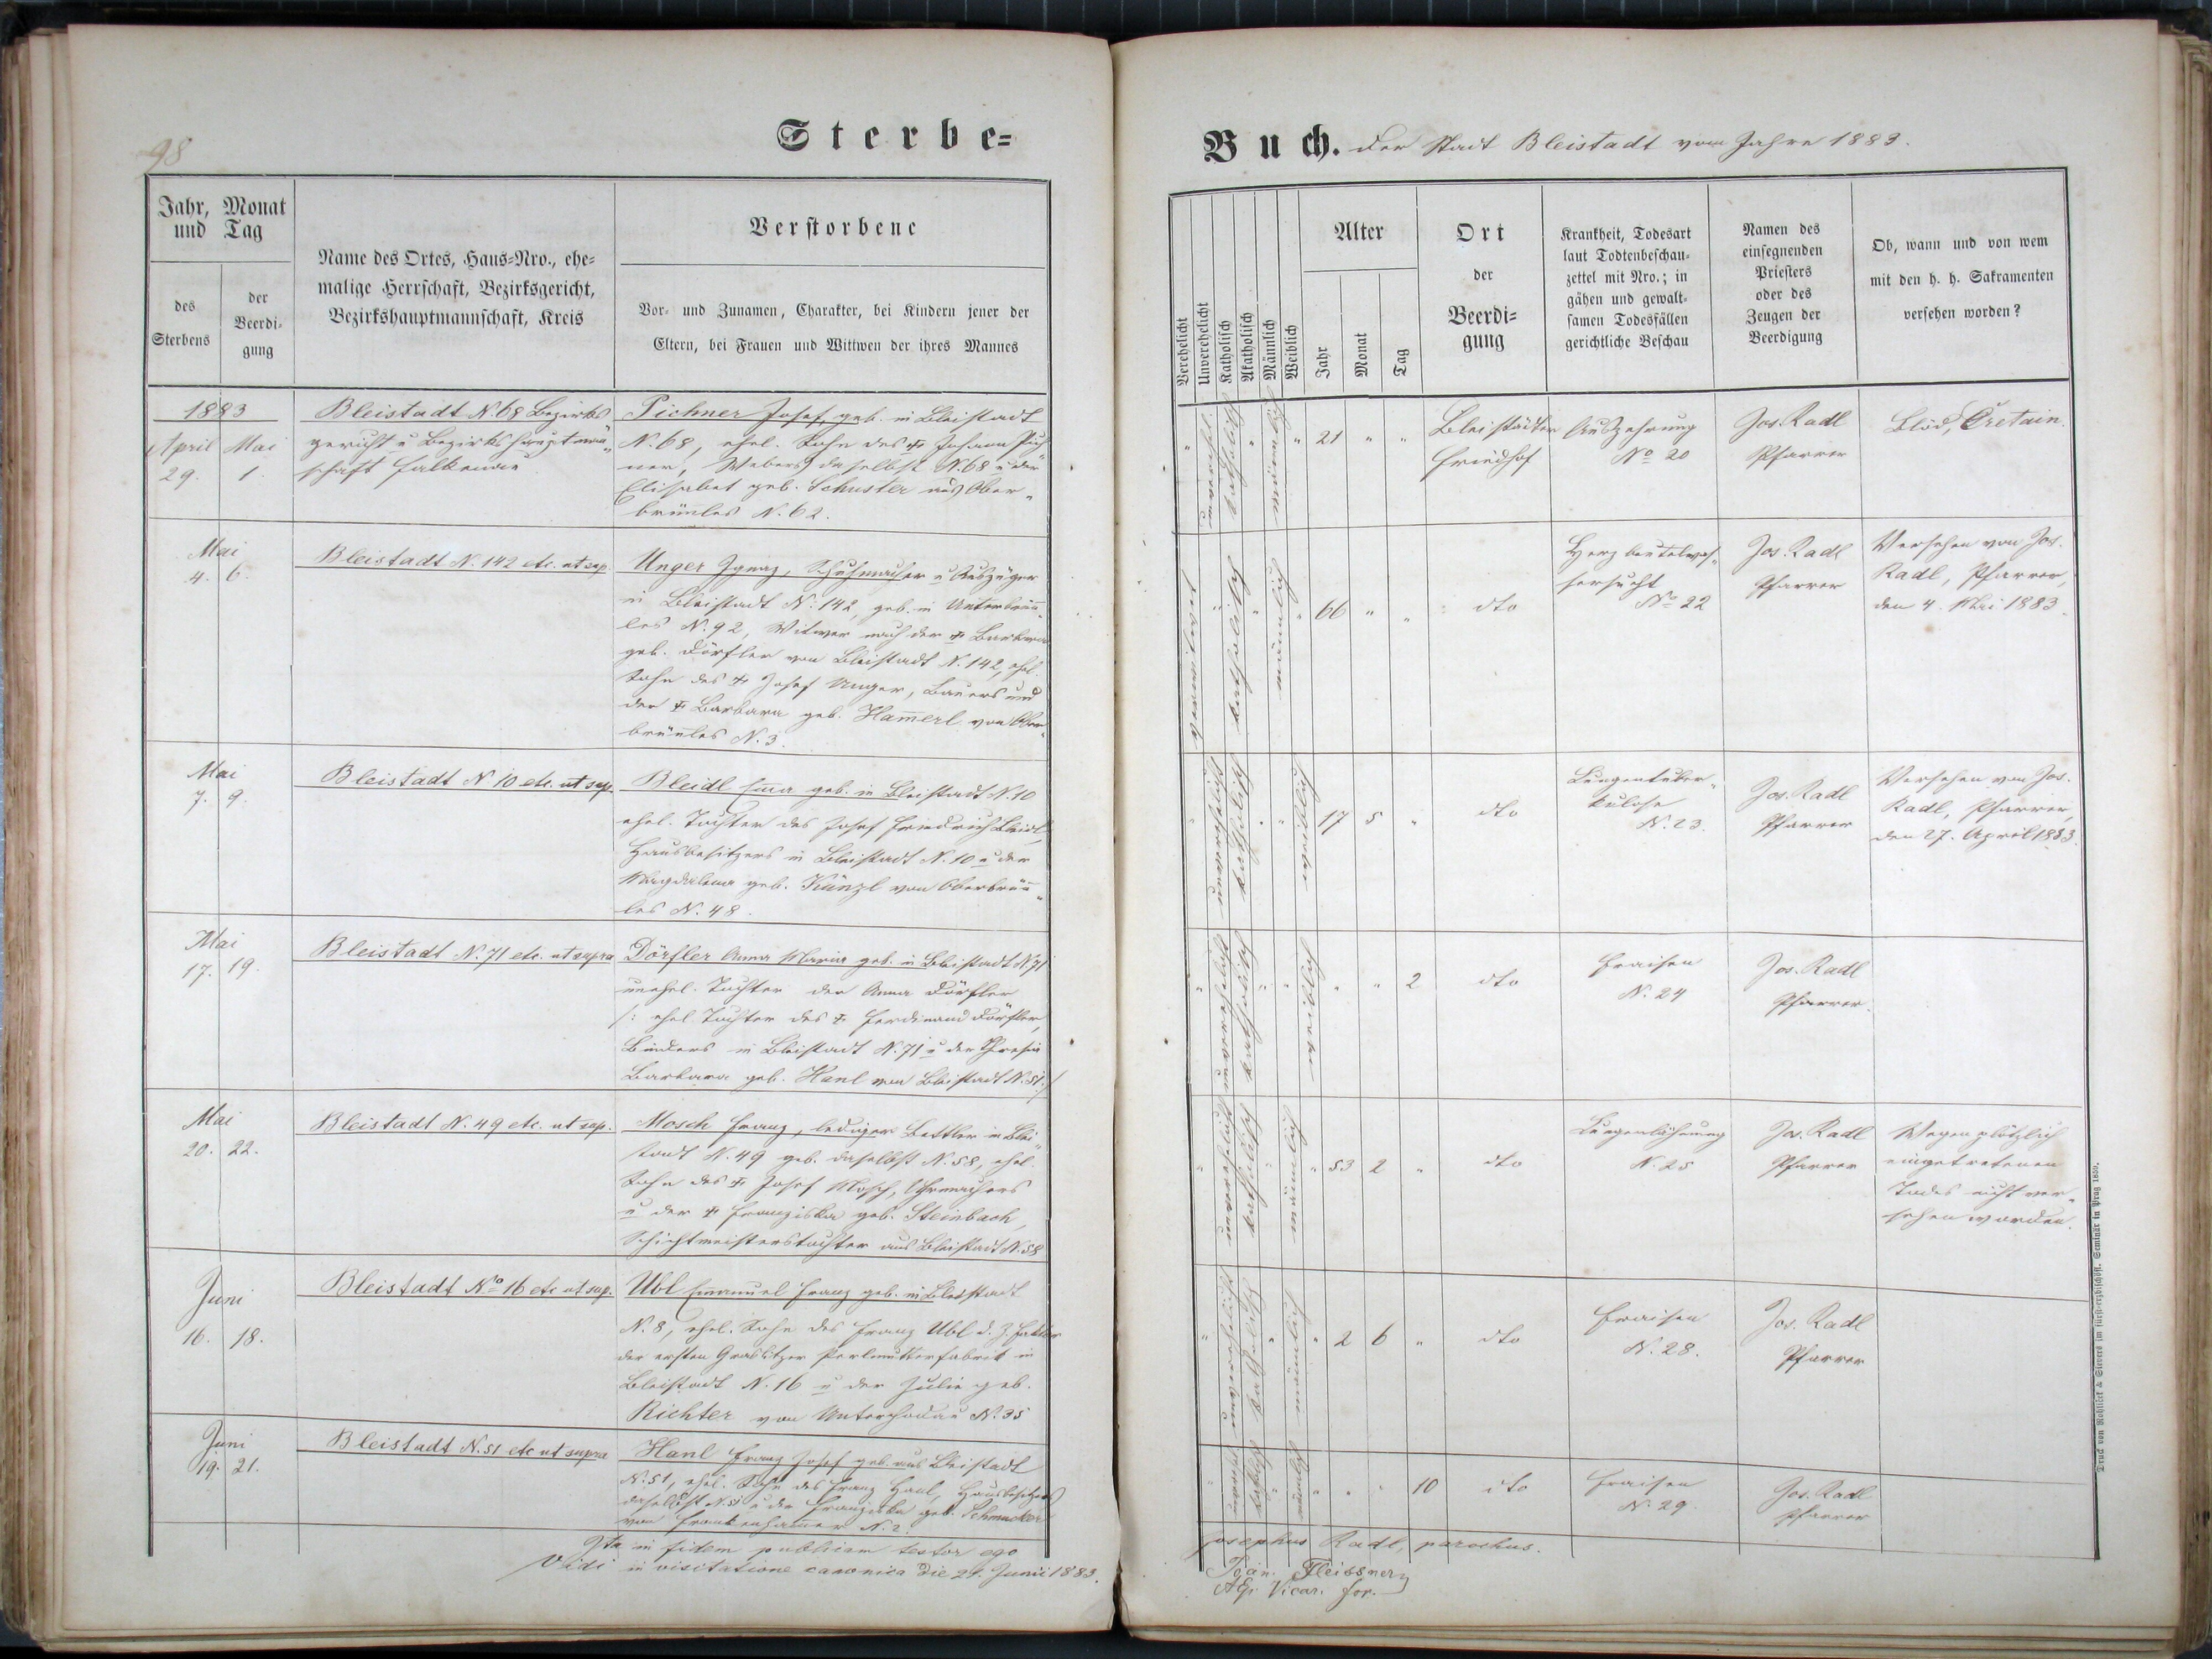 98
Sterbe=
Jahr, Monat
und Tag
des
Sterbens
der
Beerdi=
gung
Name des Ortes, Haus=Nro., ehe=
malige Herrschaft, Bezirksgericht,
Bezirkshauptmannschaft, Kreis
Verstorbene
Vor= und Zunamen, Charakter, bei Kindern jener der
Eltern, bei Frauen und Wittwen der ihres Mannes
1883
April Mai
29. 1.
Bleistadt N. 68 Bezirks
gericht u Bezirkshauptman̄„
schaft Falkenau
Pichner Josef, geb. in Bleistadt
N. 68, ehel. Sohn des ☩ Johann Pich
ner, Webers daselbst N. 68 u der
Elisabet geb. Schuster aus Ober„
brünles N. 62.
Mai
4. 6.
Bleistadt N. 142 etc. ut sup.
Unger Ignaz, Schuhmacher u Auszüger
in Bleistadt N. 142, geb. in Unterbrün̄„
les N. 92, Witwer nach der ☩ Barbara
geb. Dörfler von Bleistadt N. 142, ehel.
Sohn des ☩ Josef Unger, Bauers und
der ☩ Barbara geb. Ham̄erl von Ober„
brünles N. 3.
Mai
7. 9.
Bleistadt N 10 etc. ut sup.
Bleidl Em̄a geb. in Bleistadt N. 10
ehel. Tochter des Josef Friedrich Bleidl,
Hausbesitzers in Bleistadt N. 10 u der
Magdalena geb. Künzl von Oberbrün̄„
les N. 48.
Mai
17. 19.
Bleistadt N. 71 etc. ut supra
Dörfler Anna Maria geb. in Bleistadt N. 71
unehel. Tochter der Anna Dörfler
/: ehel Tochter des ☩ Ferdinand Dörfler,
Binders in Bleistadt N. 71 u der Theresia
Barbara geb. Hanl von Bleistadt N. 51 :/
Mai
20. 22.
Bleistadt N. 49 etc. ut sup.
Mosch Franz, lediger Bettler in Blei„
stadt N. 49 geb. daselbst N. 58, ehel.
Sohn des ☩ Josef Mosch, Uhrmachers
u der ☩ Franziska geb. Steinbach,
Schichtmeisterstochter aus Bleistadt N. 58
Juni
16. 18.
Bleistadt No 16 etc ut sup.
Ubl Emanuel Franz geb. in Bleistadt
N. 8, ehel. Sohn des Franz Ubl d. Z. Faktor
der ersten Graslitzer Perlmutterfabrik in
Bleistadt N. 16 u der Julie geb.
Richter von Unterchodau N. 35
Juni
19. 21.
Bleistadt N. 51 etc ut supra
Hanl Franz Josef geb. aus Bleistadt
N. 51, ehel. Sohn des Franz Hanl, Hausbesitzers
daselbst N. 51 u der Franziska geb. Schmucker
von Frankenham̄er N. 2.
Ita in fidem publicam testor ego
Vidi in visitatione canonica die 29. Junii 1883.
Buch. der Stadt Bleistadt vom Jahre 1883.
Verehelicht
Unverehelicht
Katholisch
Akatholisch
Männlich
Weiblich
Alter
Jahr
Monat
Tag
Ort
der
Beerdi=
gung
Krankheit, Todesart
laut Todtenbeschau=
zettel mit Nro.; in
gähen und gewalt=
samen Todesfällen
gerichtliche Beschau
Namen des
einsegnenden
Priesters
oder des
Zeugen der
Beerdigung
Ob, wann und von wem
mit den h. h. Sakramenten
versehen worden?
" unverehel. katholisch " männlich " 21 " "
Bleistädter
Friedhof
Auszehrung
No 20
Jos. Radl
Pfarrer
Blöd, Cretain.
" katholisch " männlich " 66 " "
dto
Herzbeutelwas„
sersucht
No 22
Jos. Radl
Pfarrer
Versehen von Jos.
Radl, Pfarrer,
den 4. Mai 1883.
" unverehelicht katholisch " " weiblich 17 5 "
dto
Lungentuber„
kulose
N. 23.
Jos. Radl
Pfarrer
Versehen von Jos.
Radl, Pfarrer,
den 27. April 1883.
" unverehelicht katholisch " " weiblich " " 2
dto
Fraisen
N. 24
Jos. Radl
Pfarrer.
" unverehelicht katholisch " männlich " 53 2 "
dto
Lungenlähmung
N. 25
Jos. Radl
Pfarrer
Wegen plötzlich
eingetretenen
Todes nicht ver„
sehen worden.
" unverehelicht katholisch " männlich " 2 6 "
dto
Fraisen
N. 28.
Jos. Radl
Pfarrer
" unverehel kathol " männlich " " " 10
dto
Fraisen
N. 29.
Jos. Radl
Pfarrer
Josephus Radl, parochus.
Joan. Fleissner
Vicar. for.
Druck von Rohliček & Sievers im fürst=erzbischöfl. Seminär in Prag 1860.